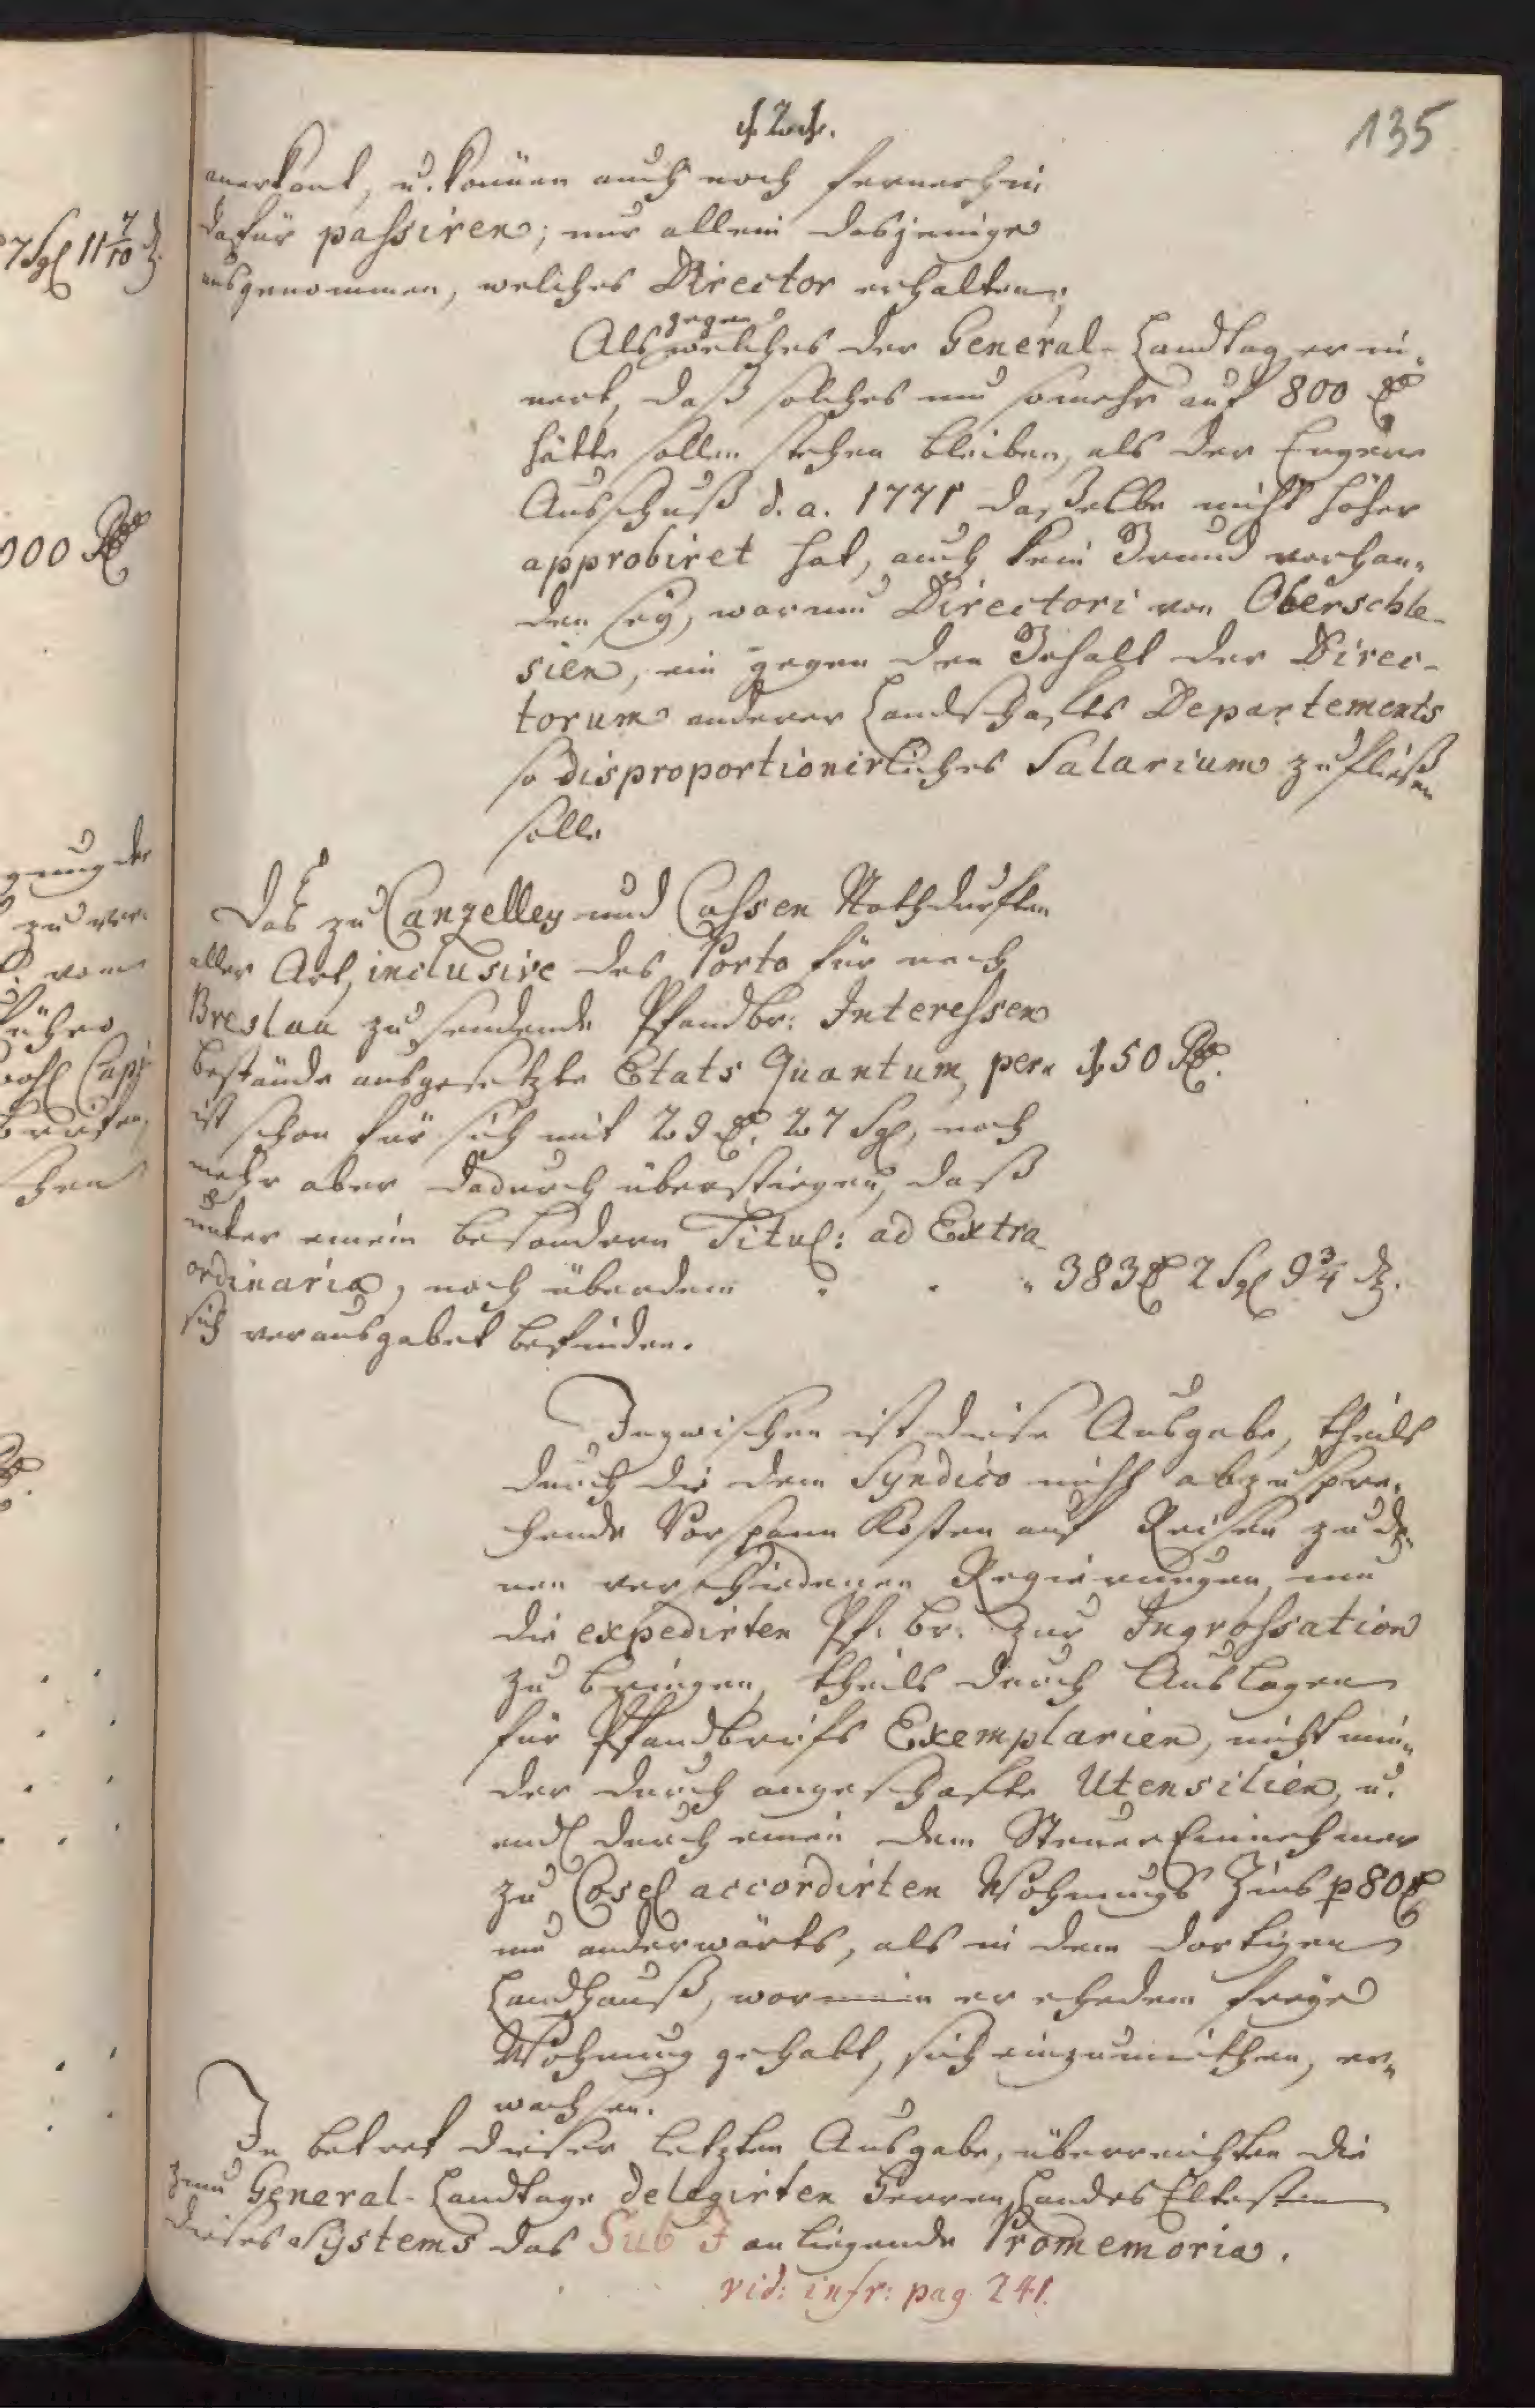 135
anerkant, u. können auch noch fernerhin
dafür passiren; nur allein dasjenige
ausgenommen, welches Director erhalten,
gegen
Als welches der General-Landtag erin-
nert, daß solches um somehr auf 800 Rthl
hätte sollen stehen bleiben, als der Engere
Ausschuß d. a. 1771 daßelbe nicht höher
approbiret hat, auch kein Grund vorhan-
den sey, warum Directori von Oberschle-
sien, ein gegen den Gehalt der Direc-
torum anderer Landschafts Departements
so disproportionirliches Salarium zufließen
solle
Das zu Canzelley und Cassen Nothdurften
aller Art, inclusive des Porto für nach
Breslau zu sendende Pfandbr: Interessen
bestände ausgesetzte Etats Quantum, per 150 Rthl.
ist schon für sich mit 29 Rthl. 27 Sgl, noch
mehr aber dadurch überstiegen, daß
unter einem besondern Titul: ad Extra
ordinaria, noch überdem 383 Rthl 2 Sgl 9 3/4 d.
sich verausgabet befinden.
Inzwischen ist diese Ausgabe, theils
durch die dem Syndico nicht abzuspre-
chende Vorspann Kosten auf Reisen zu de-
nen verschiedenen Regierungen, um
die expedirten Pf. br. zur Ingrossation
zu bringen, theils durch Auslagen
für Pfandbriefs Exemplarien, nicht min-
der durch angeschafte Utensilien, u.
endl durch einen dem Steuer Einnehmer
zu Cosel accordirten Wohnungs Zins p 80 Rthl
um anderwärts, als in dem dortigen
Landhauß, worinnen er ehedem freye
Wohnung gehabt, sich einzumiethen, er-
wachsen.
In betref dieser letzten Ausgabe, überreichten die
zum General-Landtage delegirten Herren Landes Eltesten
dieses Systems das Sub J anliegende Promemoria.
vid: infr: pag 241.